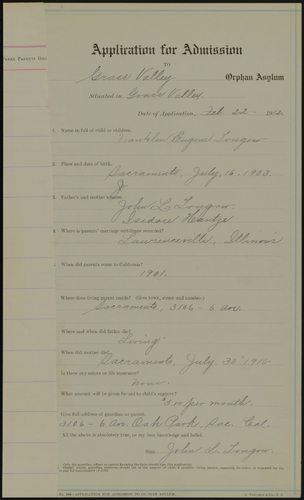 Application for Admission
TO
Grass Valley Orphan Asylum
Situated in Grass Valley
Date of Application, Feb. 22 - 1912.
1. Name in full of child or children.
Franklin Eugene
2. Place and date of birth.
Sacramento, July, 16, 1903.
3. Father's and mother's names.
John L.
Isadore
4. Where is parents' marriage certificate recorded?
Lawrenceville, Illinois
When did parents come to California?
1901.
Where does living parent reside? (Give town, street and number.)
Sacramento, 3186 - 6 Ave.
Where and when did father die?
Living
When did mother die?
Sacramento, July, 30' 1910.
Is there any estate or life insurance?
None.
What amount will be given for aid to child's support?
per month.
Give full address of guardian or parent.
3186 - 6 Ave Oak Park, Sac. Cal.
All the above is absolutely true, to my best knowledge and belief.
Sign John L.